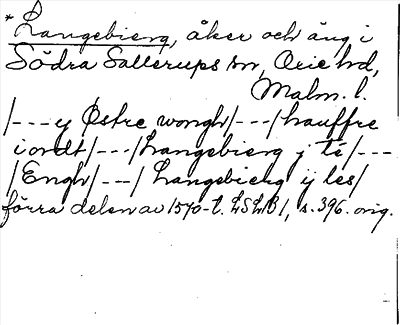 * Langebierg, åker och äng i
Södra Sallerups sn, Oxie hd,
Malm. l.
/---y Østre wongh/---/hauffre
iordt/---/Langebierg j tē/---
/Engh/---/Langebierg ij les/
förra delen av 1570-t. LSLB1, s. 396. orig.